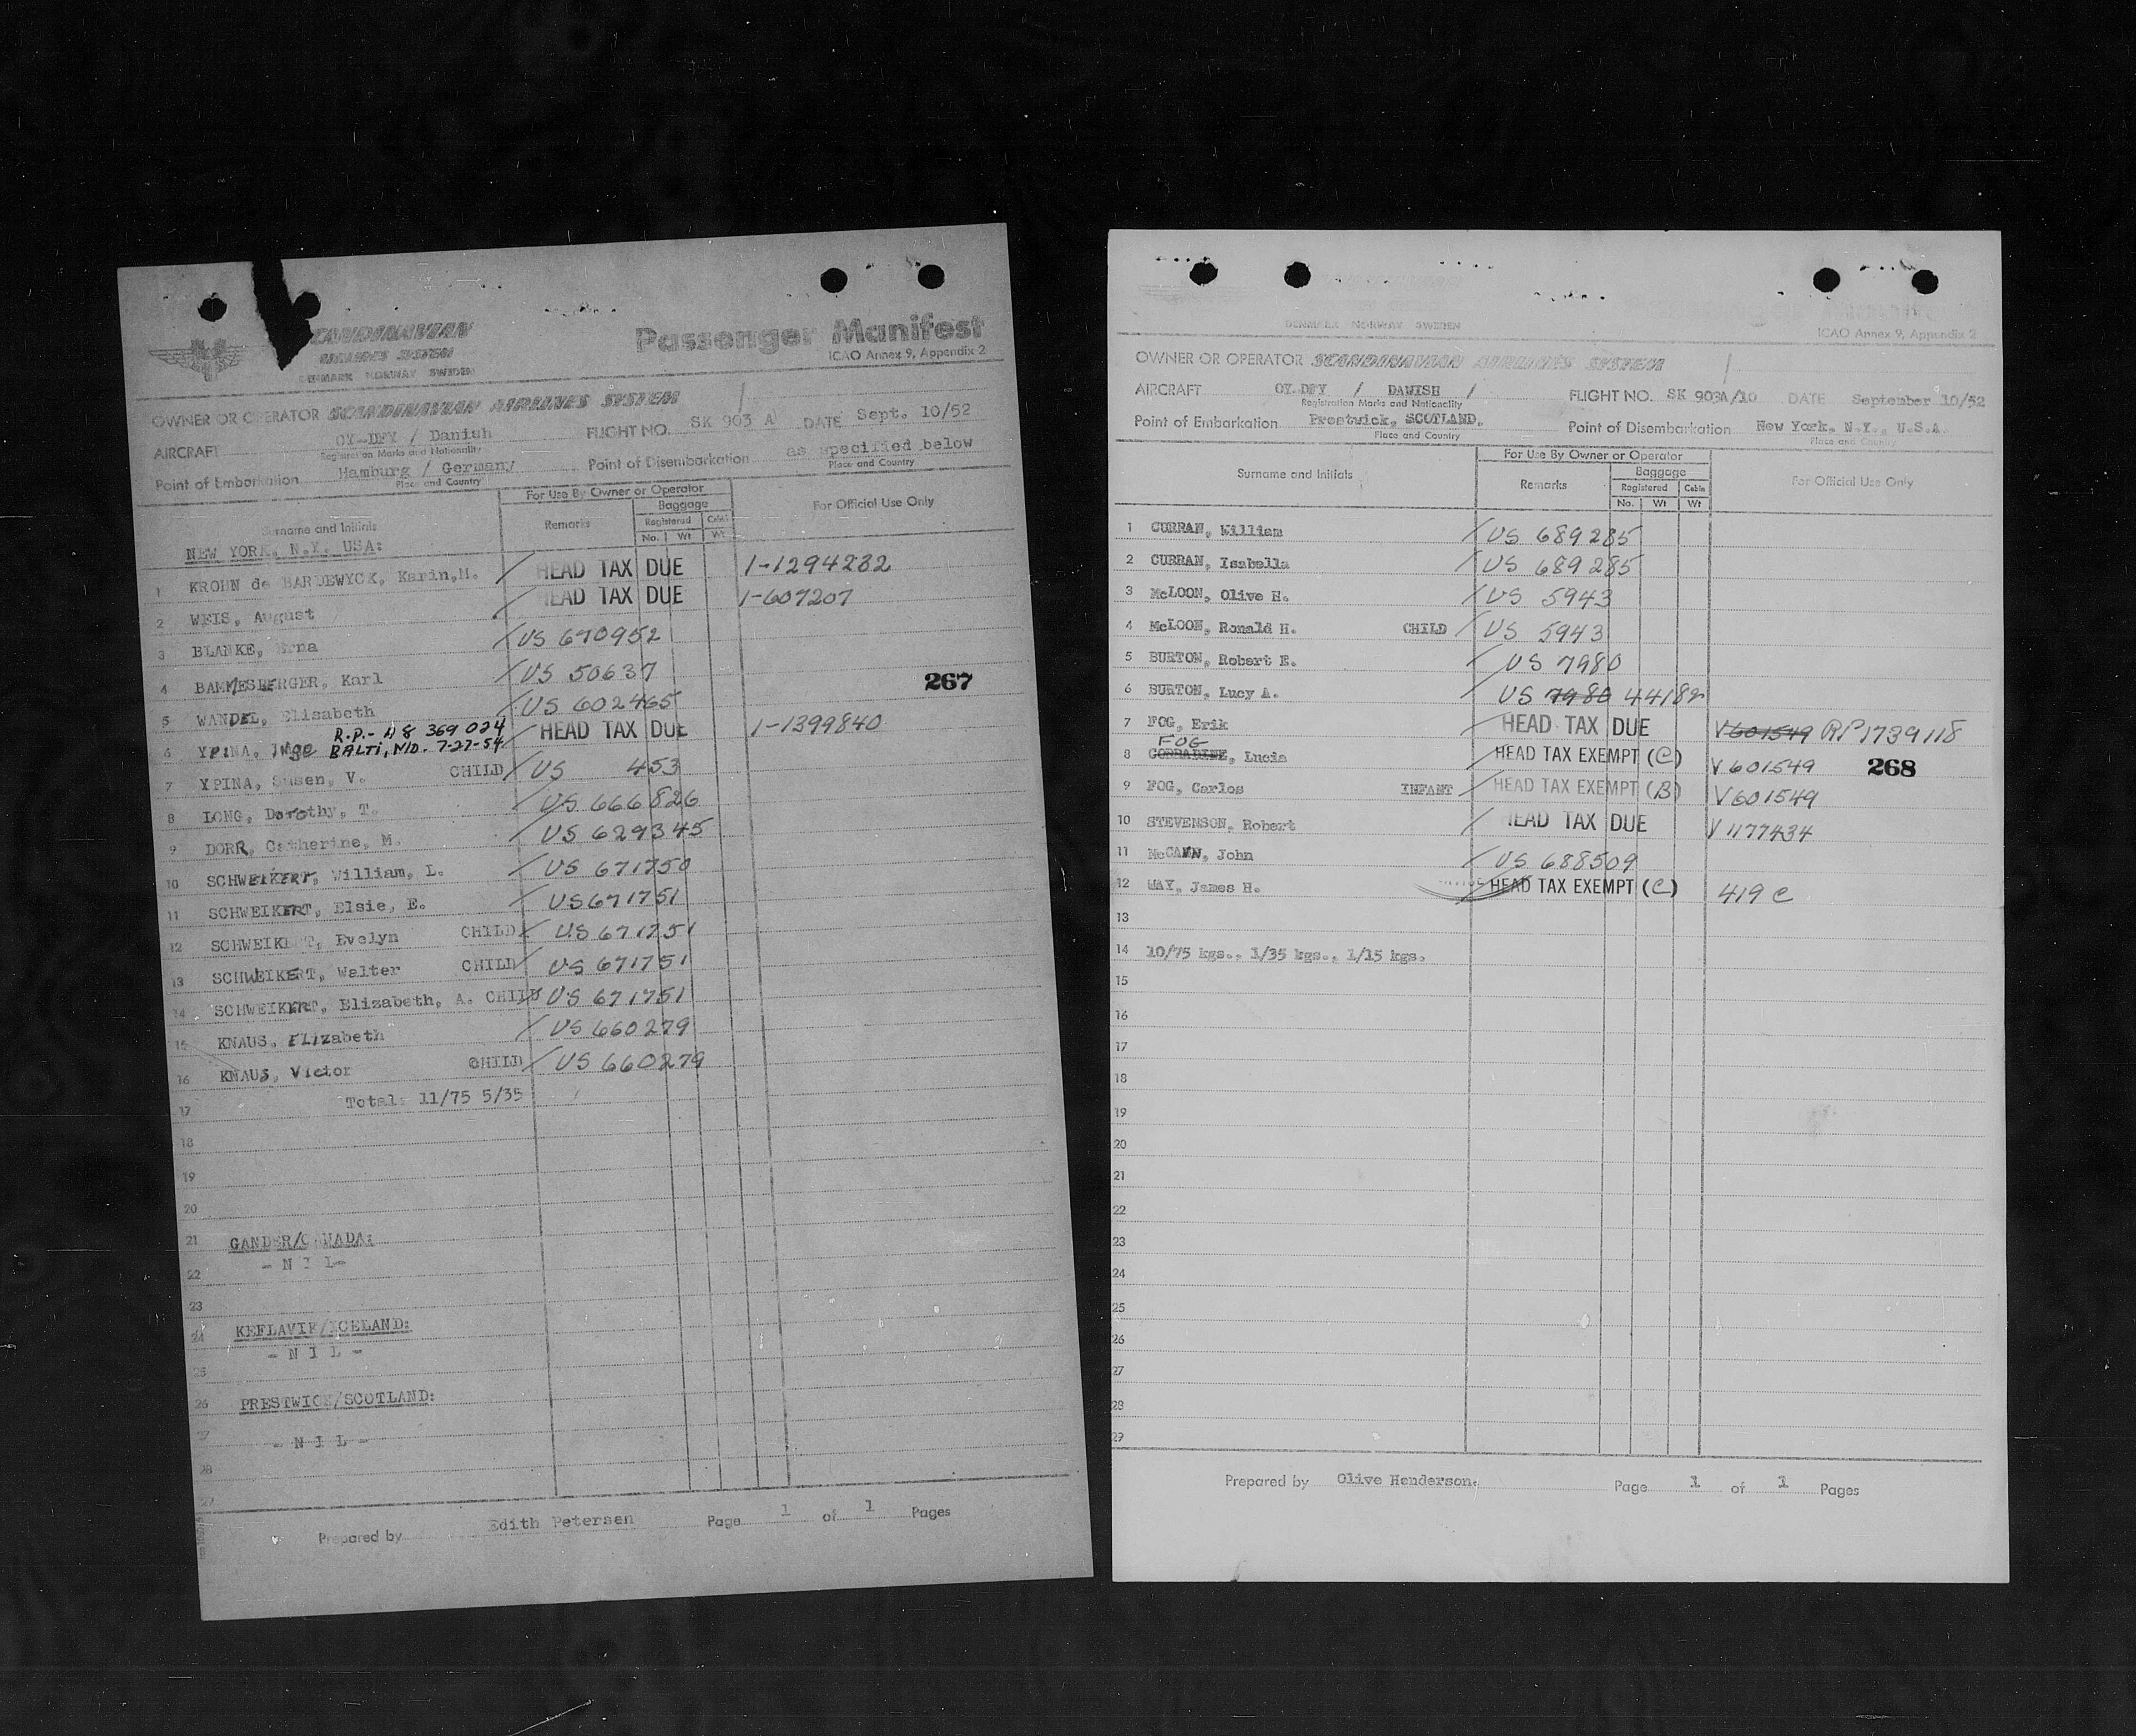 SCANDINAVIAN
AIRLINES SYSTEM
DENMARK NORWAY SWEDEN
Passenger Manifest
ICAO Annex 9, Appendix 2
OWNER OR OPERATOR SCANDINAVIAN AIRLINES SYSTEM
AIRCRAFT OY-DFY / Danish FLIGHT NO. SK 903 A DATE Sept. 10/52
Registration Marks and Nationality
Point of Embarkation Hamburg / Germany Point of Disembarkation as specified below
Place and Country Place and Country
For Use By Owner or Operator
Baggage
Surname and Initials Remarks Registered Cabin For Official Use Only
No. Wt Wt
NEW YORK, N.Y. USA:
1 KROHN de BARDEWYCK, Karin,M. / HEAD TAX DUE 1-1294282
2 WEIS, August / HEAD TAX DUE 1-607207
3 BLANKE, Erna / US 670952
4 BAMMESBERGER, Karl / US 50637
267
5 WANDEL, Elisabeth / US 602465
R.P.- A 8 369 024
6 YPINA, Inge BALTI, MD. 7-27-54 / HEAD TAX DUE 1-1399840
7 YPINA, Susen, V. CHILD / US 453
8 LONG, Dorothy, T. / US 666826
9 DORR, Catherine, M. / US 629345
10 SCHWEIKERT, William, L. / US 671750
11 SCHWEIKERT, Elsie, E. / US 671751
12 SCHWEIKERT, Evelyn CHILD / US 671751
13 SCHWEIKERT, Walter CHILD / US 671751
14 SCHWEIKERT, Elizabeth, A. CHILD / US 671751
15 KNAUS, ELIZabeth / US 660279
16 KNAUS, Victor CHILD / US 660279
17 Total: 11/75 5/35
18
19
20
21 GANDER/CANADA:
22 - N I L-
23
24 KEFLAVIK/ICELAND:
- N I L -
25
26 PRESTWICK/SCOTLAND:
27 - N I L -
28
29
Prepared by Edith Petersen Page 1 of 1 Pages
DENMARK NORWAY SWEDEN
ICAO Annex 9, Appendix 2
OWNER OR OPERATOR SCANDINAVIAN AIRLINES SYSTEM
AIRCRAFT OY-DFY / DANISH / FLIGHT NO. SK 903A/10 DATE September 10/52
Registration Marks and Nationality
Point of Embarkation Prestwick, SCOTLAND. Point of Disembarkation New York, N.Y., U.S.A.
Place and Country Place and Country
For Use By Owner or Operator
Baggage
Surname and Initials Remarks Registered Cabin For Official Use Only
No. Wt Wt
1 CURRAN, William / US 689285
2 CURRAN, Isabella / US 689285
3 McLOON, Olive H. / US 5943
4 McLOON, Ronald H. CHILD / US 5943
5 BURTON, Robert E. / US 7980
6 BURTON, Lucy A. / US 7980 44182
7 FOG, Erik / HEAD TAX DUE V601549 RP1739118
FOG
8 CORRADINE, Lucia / HEAD TAX EXEMPT (C) V601549
268
9 FOG, Carlos INFANT / HEAD TAX EXEMPT (B) V601549
10 STEVENSON, Robert / HEAD TAX DUE V1177434
11 McCANN, John / US 688509
12 WAY, James H. HEAD TAX EXEMPT (C) 419 C
13
14 10/75 kgs., 1/35 kgs., 1/15 kgs.
15
16
17
18
19
20
21
22
23
24
25
26
27
28
29
Prepared by Olive Henderson. Page 1 of 1 Pages